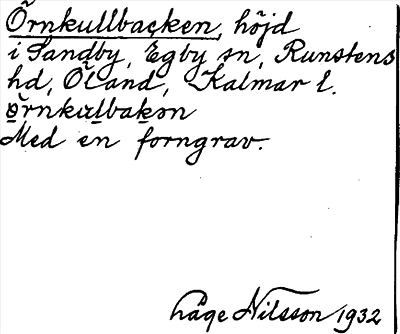 Örnkullbacken, höjd
i Sandby, Egby sn, Runstens
hd, Öland, Kalmar l.
ørnkulbakən
Med en forngrav.
Håge Nilsson 1932